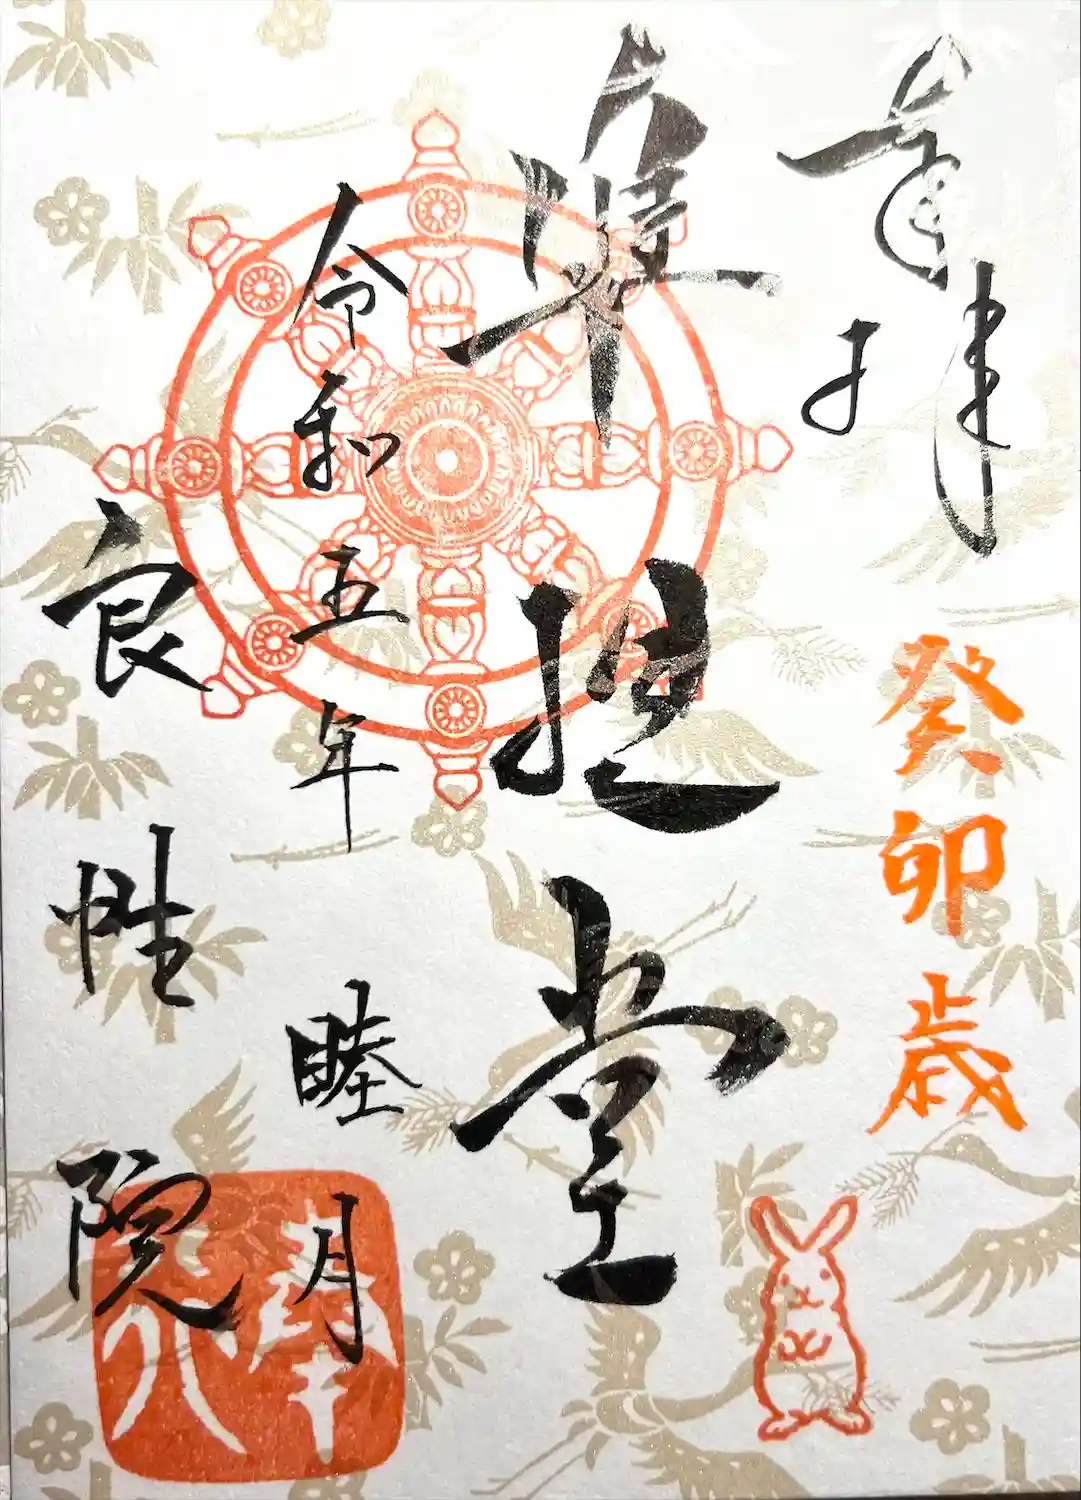 奉拝
癸卯歳
準提堂
令和五年 睦月
良性院